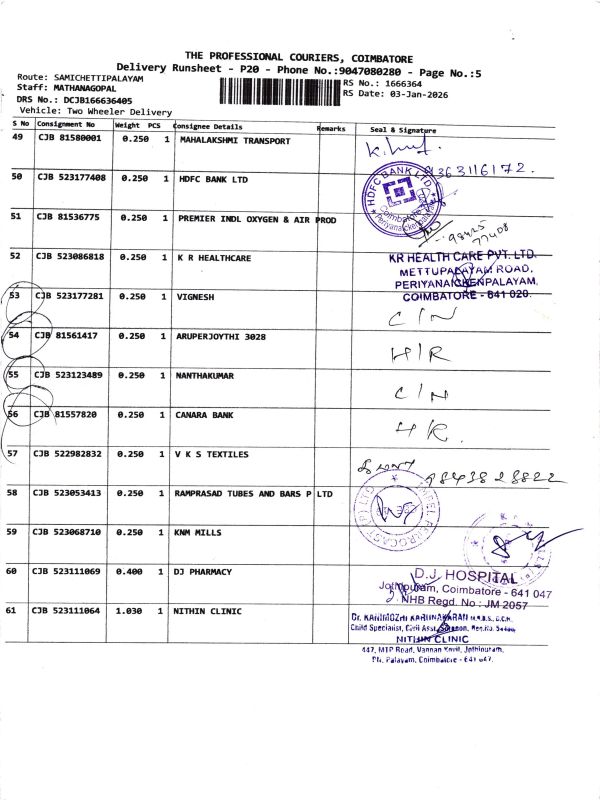 THE PROFESSIONAL COURIERS, COIMBATORE
Delivery Runsheet - P20 - Phone No.:9047080280 - Page No.:5
Route: SAMICHETTIPALAYAM
RS No.: 1666364
Staff: MATHANAGOPAL
RS Date: 03-Jan-2026
DRS No.: DCJB166636405
Vehicle: Two Wheeler Delivery
S No Consignment No Weight PCS Consignee Details Remarks Seal & Signature
49 CJB 81580001 0.250 1 MAHALAKSHMI TRANSPORT
9363116172.
50 CJB 523177408 0.250 1 HDFC BANK LTD
HDFC BANK LTD.
Coimbatore
51 CJB 81536775 0.250 1 PREMIER INDL OXYGEN & AIR PROD
98425
77408
52 CJB 523086818 0.250 1 K R HEALTHCARE
KR HEALTH CARE PVT. LTD.
METTUPALAYAM ROAD,
PERIYANAICKENPALAYAM,
COIMBATORE - 641 020.
53 CJB 523177281 0.250 1 VIGNESH
C/N
54 CJB 81561417 0.250 1 ARUPERJOYTHI 3028
H/R
55 CJB 523123489 0.250 1 NANTHAKUMAR
C/N
56 CJB 81557820 0.250 1 CANARA BANK
HR.
57 CJB 522982832 0.250 1 V K S TEXTILES
9843828822
58 CJB 523053413 0.250 1 RAMPRASAD TUBES AND BARS P LTD
59 CJB 523068710 0.250 1 KNM MILLS
60 CJB 523111069 0.400 1 DJ PHARMACY
D.J. HOSPITAL
Jothipuram, Coimbatore - 641 047
NHB Regd. No : JM 2057
61 CJB 523111064 1.030 1 NITHIN CLINIC
Dr. KANIMOZHI KARUNAKARAN M.B.B.S., D.C.H.,
Child Specialist, Civil Asst. Surgeon,
NITHIN CLINIC
447, MTP Road, Vannan Kovil, Jothipuram,
PN. Palayam, Coimbatore - 641 047.